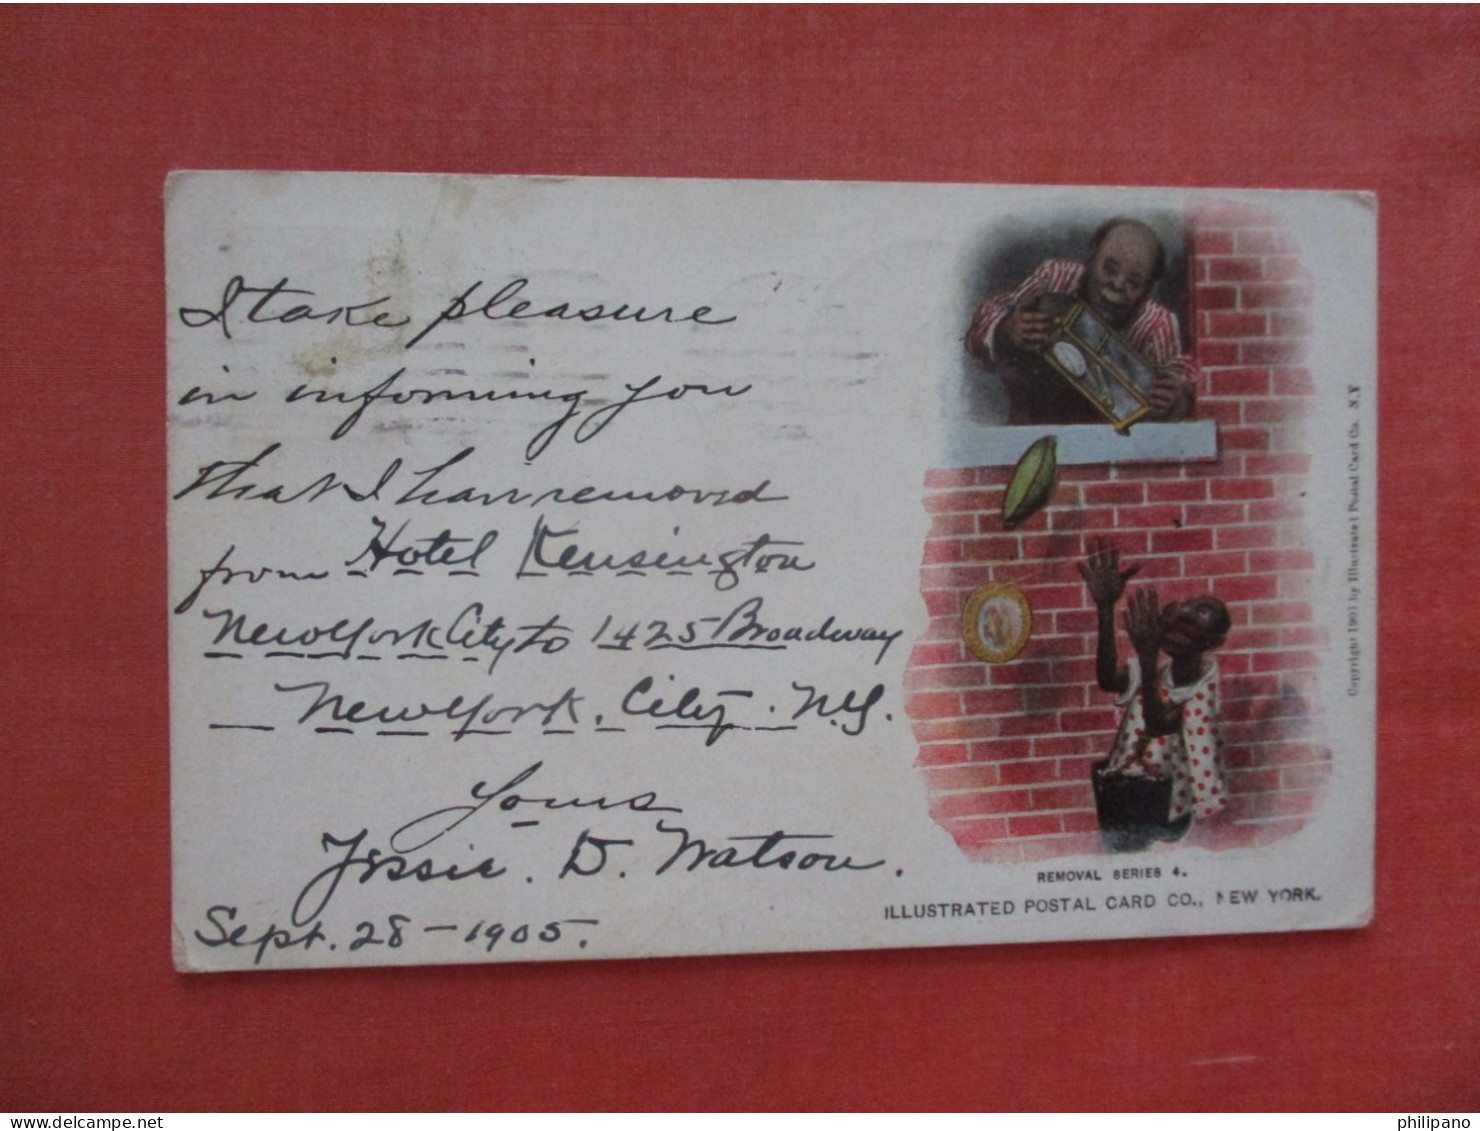 I take pleasure
in informing you
that I have removed
from Hotel Kensington
New York City to 1425 Broadway
New York. City. N.Y.
Yours
Jessie. D. Watson.
Sept. 28 - 1905.
REMOVAL SERIES 4.
ILLUSTRATED POSTAL CARD CO., NEW YORK.
Copyright 1901 by Illustrated Postal Card Co. N.Y
philipano
www.delcampe.net